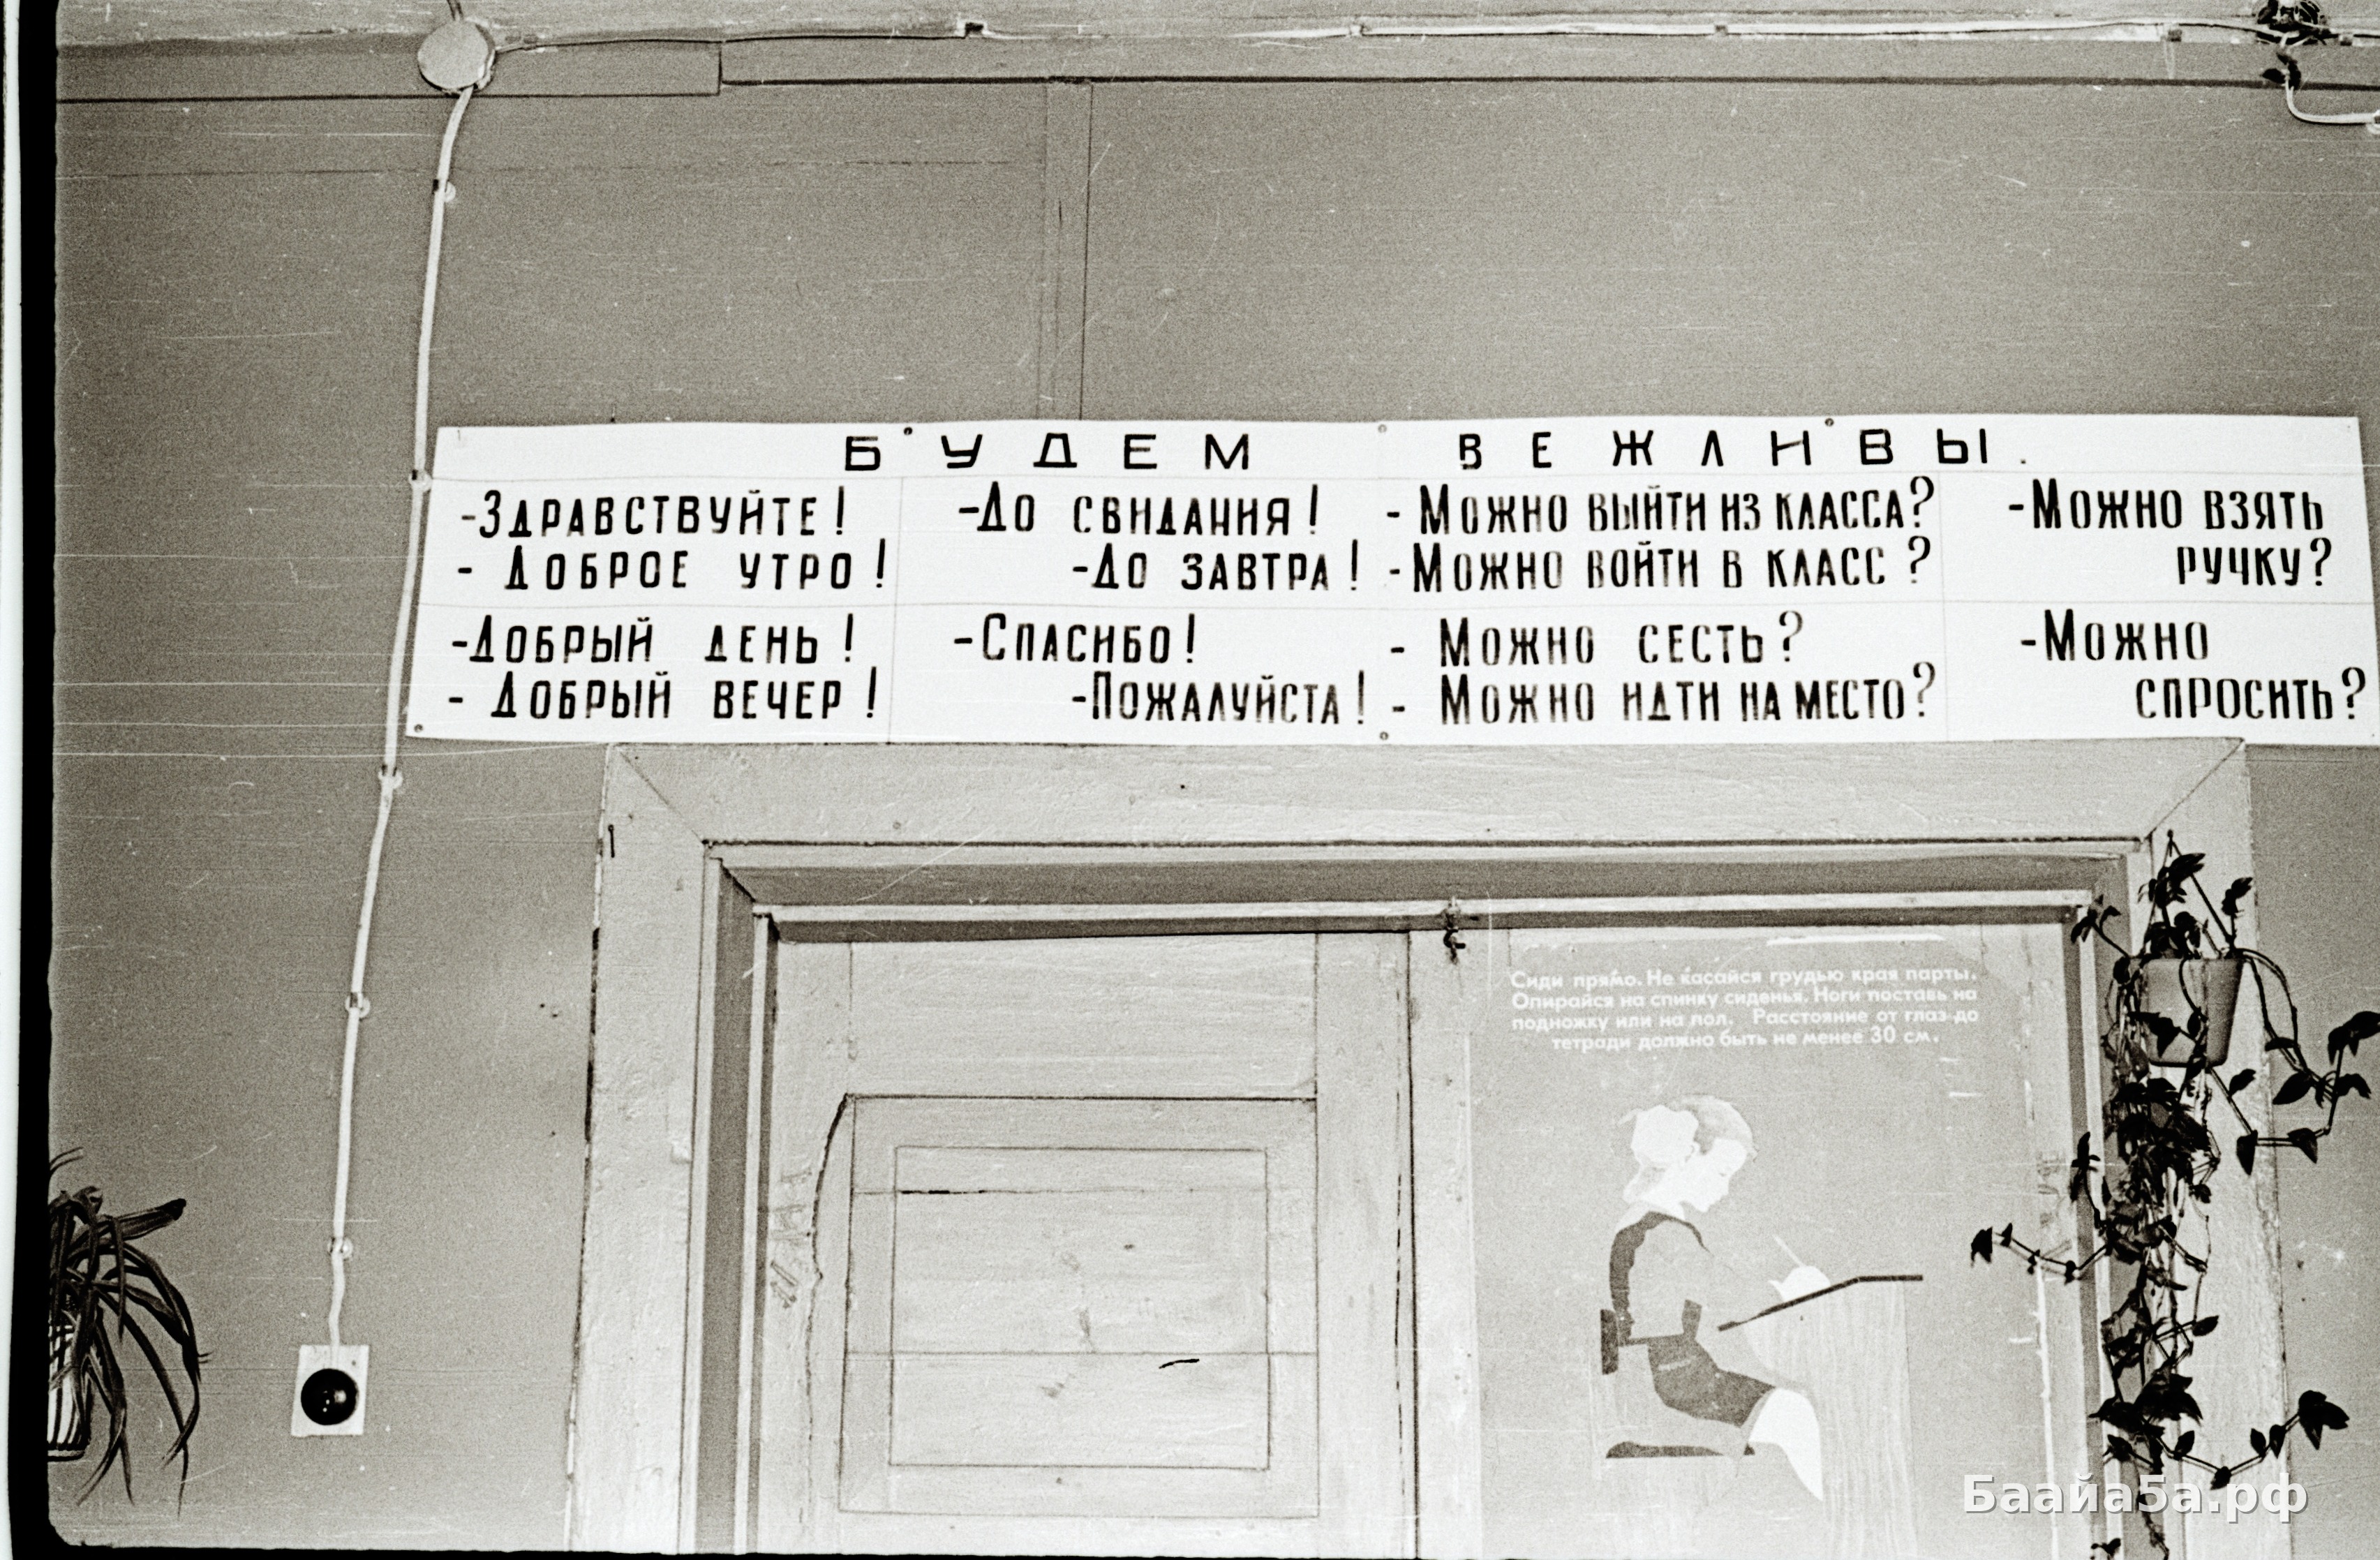 БУДЕМ ВЕЖЛИВЫ.
-Здравствуйте!
- Доброе утро!
-Добрый день!
- Добрый вечер!
-До свидания!
-До завтра!
-Спасибо!
-Пожалуйста!
- Можно выйти из класса?
- Можно войти в класс?
- Можно сесть?
- Можно идти на место?
-Можно взять
ручку?
-Можно
спросить?
Сиди прямо. Не касайся грудью края парты.
Опирайся на спинку сиденья. Ноги поставь на
подножку или на пол. Расстояние от глаз до
тетради должно быть не менее 30 см.
Баайа5а.рф